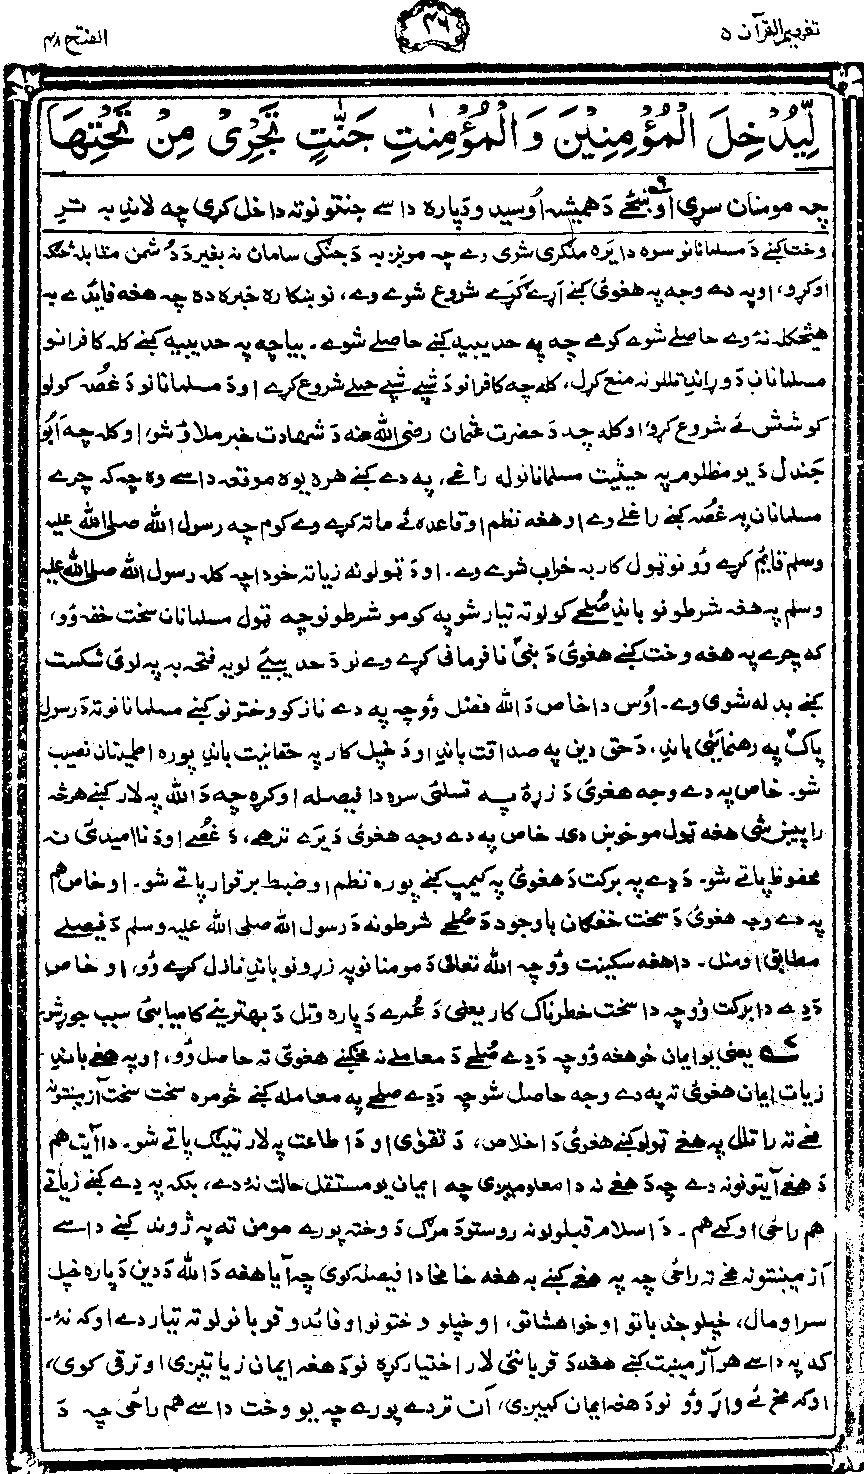 تفهیم القرآن ۵
۴۶
الفتح ۴۸
لِّيُدْخِلَ الْمُؤْمِنِيْنَ وَالْمُؤْمِنٰتِ جَنّٰتٍ تَجْرِيْ مِنْ تَحْتِهَا
چه مومنان سړی او ښځے دَ همیشه اُوسیدو دپاره داسے جنتونو ته داخل کړی چه لاندِ به تر
وخت کښے دَ مسلمانانو سره دا یَره ملګری شوی وے چه مونږ به دَ جنګی سامان نه بغیر دَ دُشمن مقابله څنګه
اوکړو، او په دے وجه په هغوئ کښے اَرے ګَرے شروع شوے وے، نو ښکاره خبره ده چه هغه فایدے به
هیڅکله نهٔ وے حاصلے شوے کومے چه په حدیبیه کښے حاصلے شوے۔ بیا چه په حدیبیه کښے کله کافرانو
مسلمانان دَ وړاندِ تللو نه منع کړل، کله چه کافرانو دَ شپے شپے حملے شروع کړے او دَ مسلمانانو دَ غُصه کولو
کوشش ئے شروع کړو، او کله چه دَ حضرت عثمان رضی الله عنه دَ شهادت خبر ملاؤ شو، او کله چه اَبُو
جَندل دَ یو مظلوم په حیثیت مسلمانانو له راغے، په دے کښے هره یوه موقعه داسے وه چه که چرے
مسلمانان په غُصه کښے راغلے وے او هغه نظم او قاعده ئے ماته کړے وے کوم چه رسول الله صلی الله علیه
وسلم قایم کړے وُو نو ټول کار به خراب شوے وے۔ او دَ ټولو نه زیاته خو دا چه کله رسول الله صلی الله علیه
وسلم په هغه شرطونو باندِ صُلحے کولو ته تیار شو په کومو شرطونو چه ټول مسلمانان سخت خفه وُو،
که چرے په هغه وخت کښے هغوئ دَ نبیؐ نافرمانی کړے وے نو دَ حدیبیئے لویه فتحه به په لوئ شکست
کښے بدله شوی وے۔ اُوس دا خاص دَ الله فضل وُو چه په دے نازکو وختونو کښے مسلمانانو ته دَ رسول
پاکؐ په رهنمایئی باندِ، دَ حق دین په صداقت باندِ او دَ خپل کار په حقانیت باندِ پوره اطمینان نصیب
شو۔ خاص په دے وجه هغوئ دَ زړهٔ په تسلئ سره دا فیصله اوکړه چه دَ الله په لار کښے هر څه
را پیښ شی هغه ټول مو خوښ دی۔ خاص په دے وجه هغوئ دَ یَرے ترهے، دَ غُصے او دَ ناامیدئ نه
محفوظ پاتے شو۔ دَ دے په برکت دَ هغوئ په کیمپ کښے پوره نظم او ضبط برقرار پاتے شو۔ او خاص هم
په دے وجه هغوئ دَ سخت خفګان باوجود دَ صُلحے شرطونه دَ رسول الله صلی الله علیه وسلم دَ فیصلے
مطابق اومنل۔ دا هغه سکینت وُو چه الله تعالیٰ دَ مومنانو په زړونو باندِ نازل کړے وُو، او خاص
دَ دے دا برکت وُو چه دا سخت خطرناک کار یعنی دَ عُمرے دَپاره وتل دَ بهترینے کامیابئ سبب جوړ شو
یعنی یو ایمان خو هغه وُو چه دَ دے صُلحے دَ معاملے نه مخکښے هغوئ ته حاصل وُو، او په هغے باندِ
زیات ایمان هغوئ ته په دے وجه حاصل شو چه دَ دے صلحے په معامله کښے څومره سخت سخت آزمېنتونه
مخے ته راتلل په هغے ټولو کښے هغوئ دَ اخلاص، دَ تقویٰ او دَ اطاعت په لار ټینګ پاتے شو۔ دا آیت هم
دَ هغے آیتونو نه دے چه دَ هغے نه دا معلومیږی چه ایمان یو مستقل حالت نهٔ دے، بلکه په دے کښے زیاتے
هم راځی او کمے هم۔ دَ اسلام قبلولو نه روستو دَ مرګ دَ وخته پورے مومن ته په ژوند کښے داسے
آزمېنتونه مخے ته راځی چه په هغے کښے به هغه خامخا دا فیصله کوی چه آیا هغه دَ الله دَ دین دَ پاره خپل
سر او مال، خپلو جذباتو او خواهشاتو، او خپلو وختونو او فائدو قربانولو ته تیار دے او که نهٔ۔
که په داسے هر آزمېنت کښے هغه دَ قربانئ لار اختیار کړه نو دَ هغه ایمان زیاتیږی او ترقی کوی،
او که مخ ئے واړوو نو دَ هغه ایمان کمیږی، اَن تر دے پورے چه یو وخت داسے هم راځی چه دَ